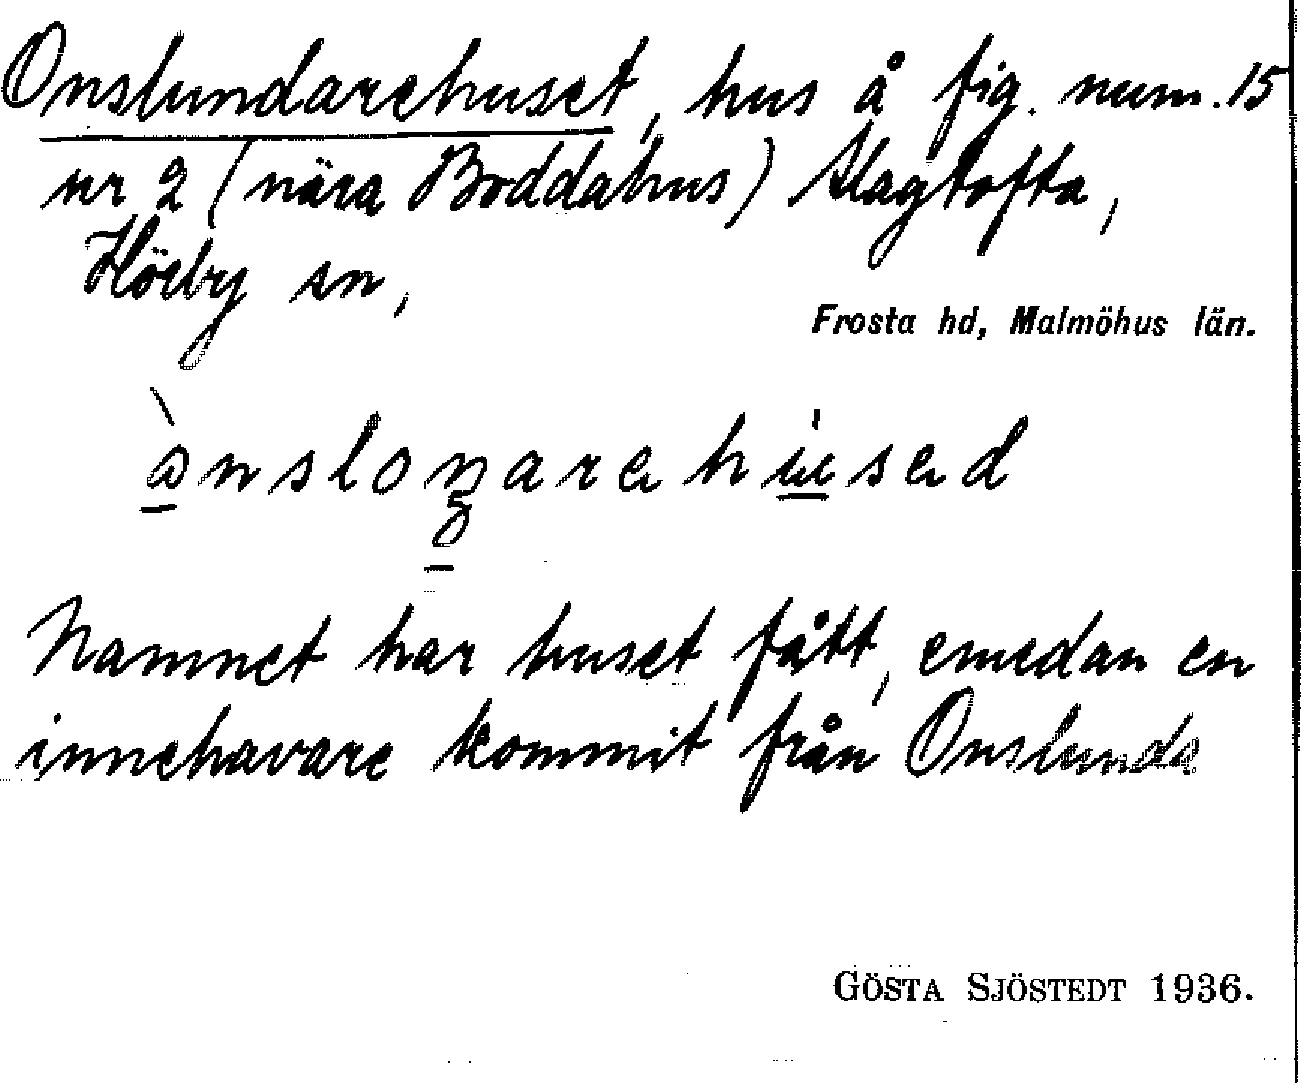 Onslundarehuset, hus å fig. num. 15
nr 2 (nära Boddahus) Slagtofta,
Hörby sn,
Frosta hd, Malmöhus län.
Namnet har huset fått, emedan en
innehavare kommit från Onslunda
GÖSTA SJÖSTEDT 1936.